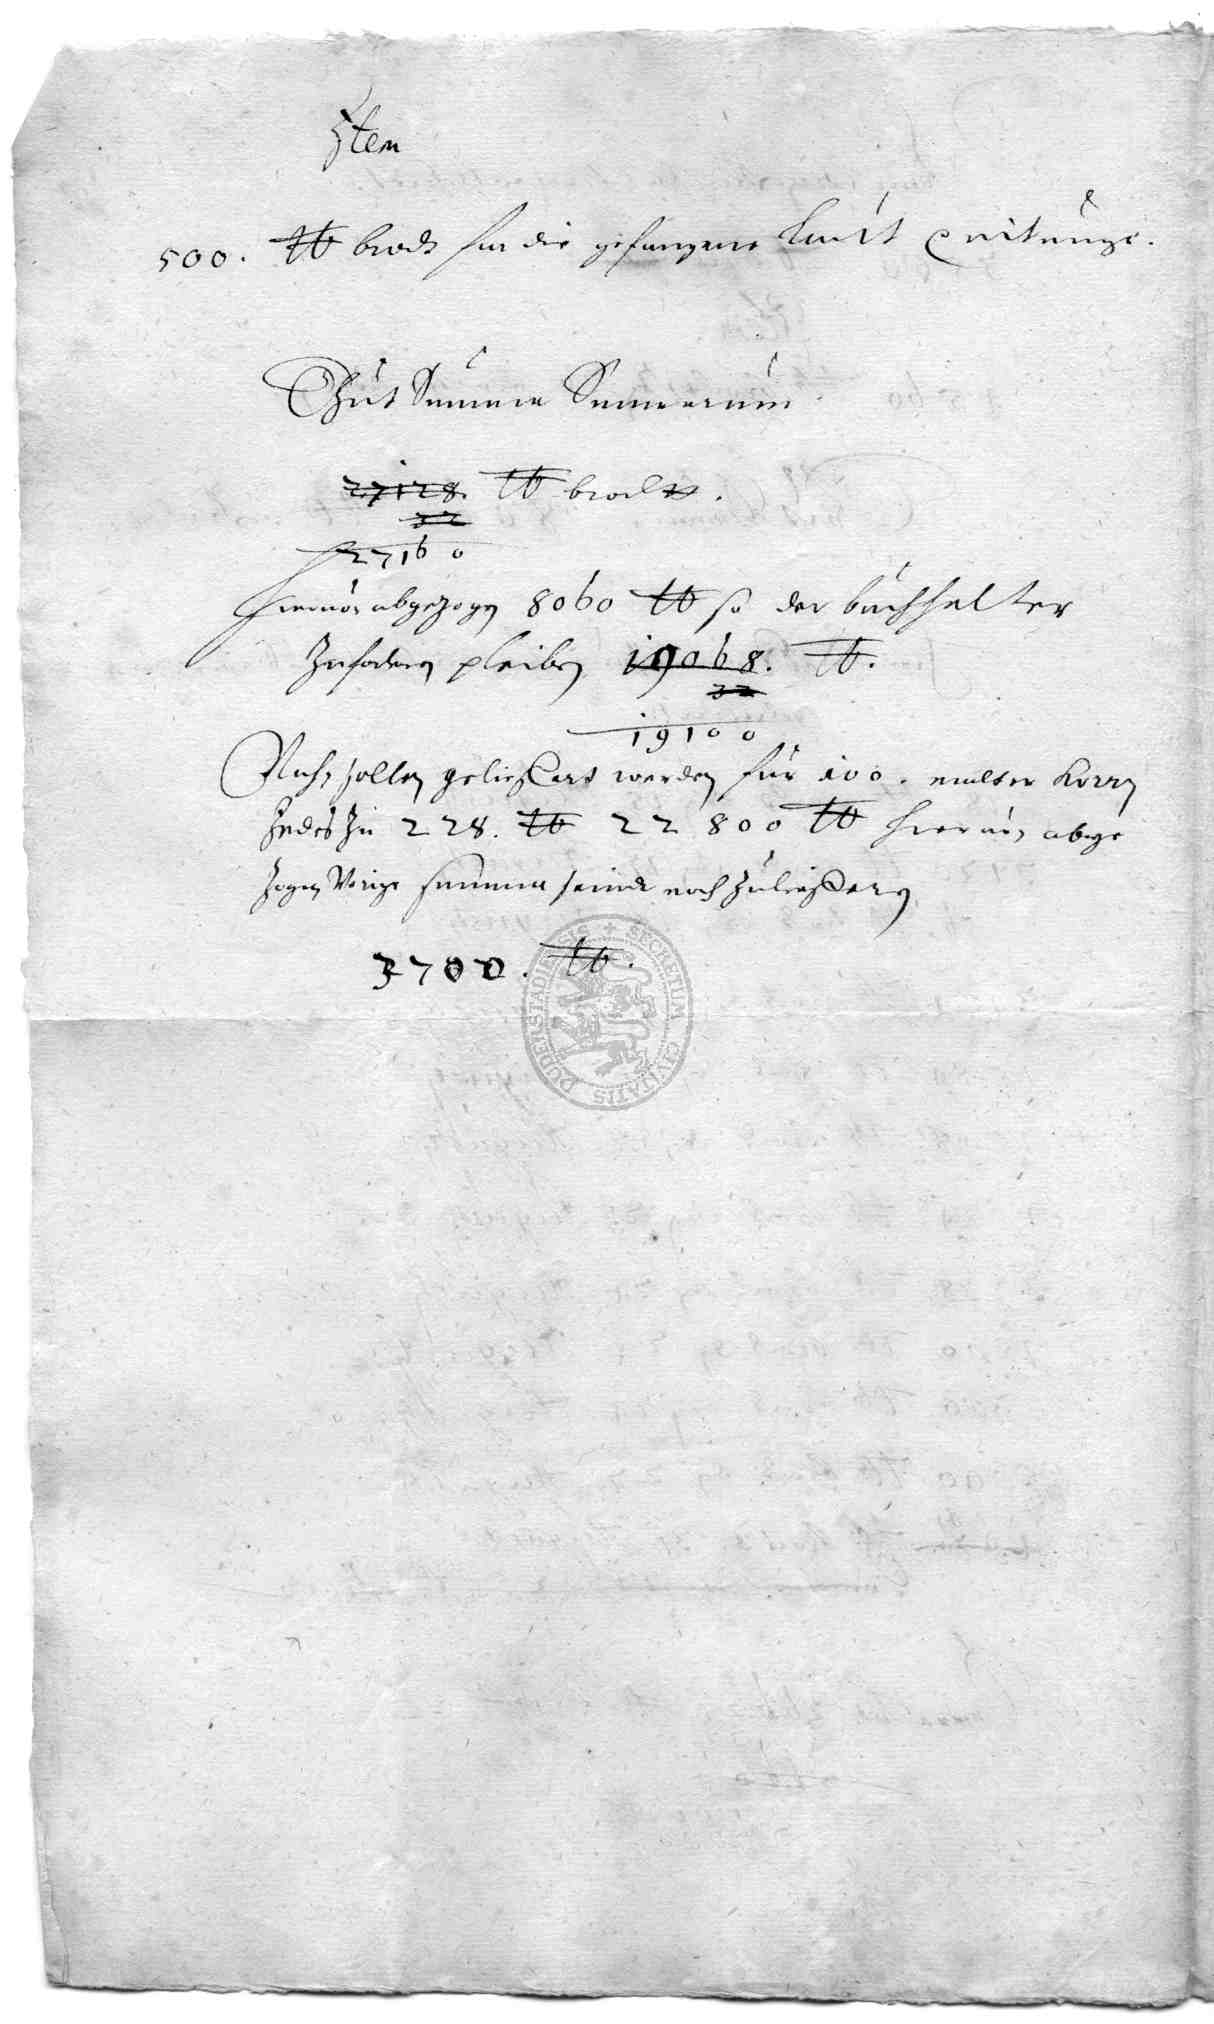 Item
500. ℔ brodt fur die gefangene lautt quitunge.
Thut Summa Summarum
27128. ℔ brodtt.
32
27160
hieruon abgezogen 8060 ℔ so der buchhalter
Zufodern pleiben 19068. ℔.
32
19100
Nuhn sollen gelieffert werden fur 100. malter Korn
Jedes Zu 228. ℔ 22800 ℔ hieruon abge
zogen Vorige summa seindt noch Zulieffern
3700. ℔.
SECRETUM CIVITATIS DUDERSTADIENSIS